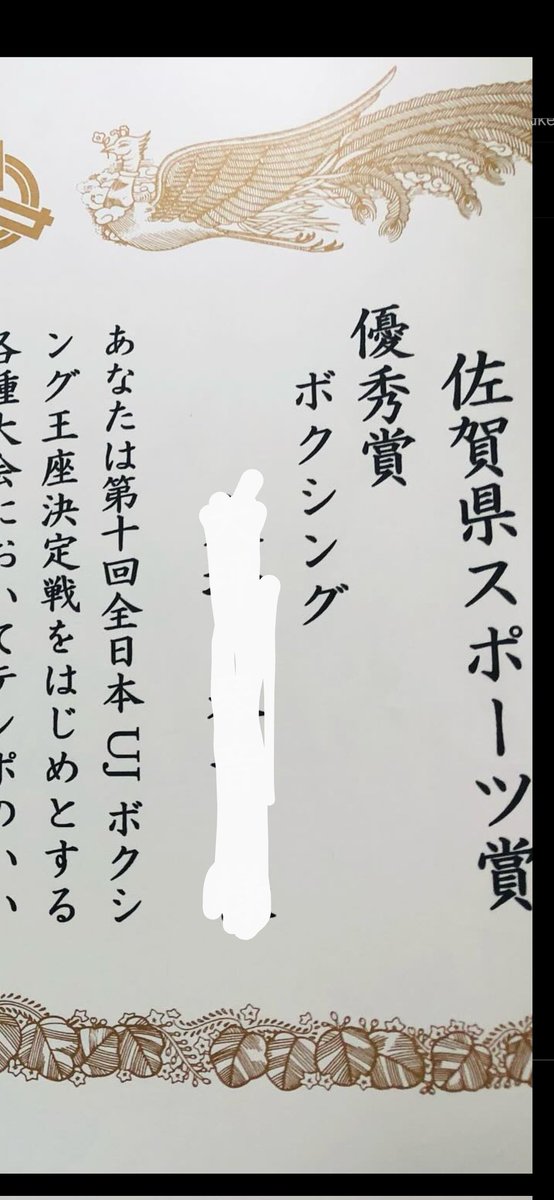 佐賀県スポーツ賞
優秀賞
ボクシング
あなたは第十回全日本UJボクシ
ング王座決定戦をはじめとする
各種大会においてテンポのいい